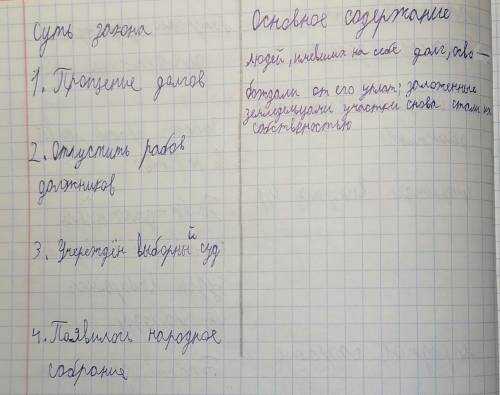 Суть закона
Основное содержание
1. Прощение долгов
людей, имевших на себе долг, осво-
бождали от его уплат; заложенные
земледельцами участки снова стали их
собственостью
2. Отпустить рабов
должников
3. Учереждён выборный суд
4. Появилось народное
собрание